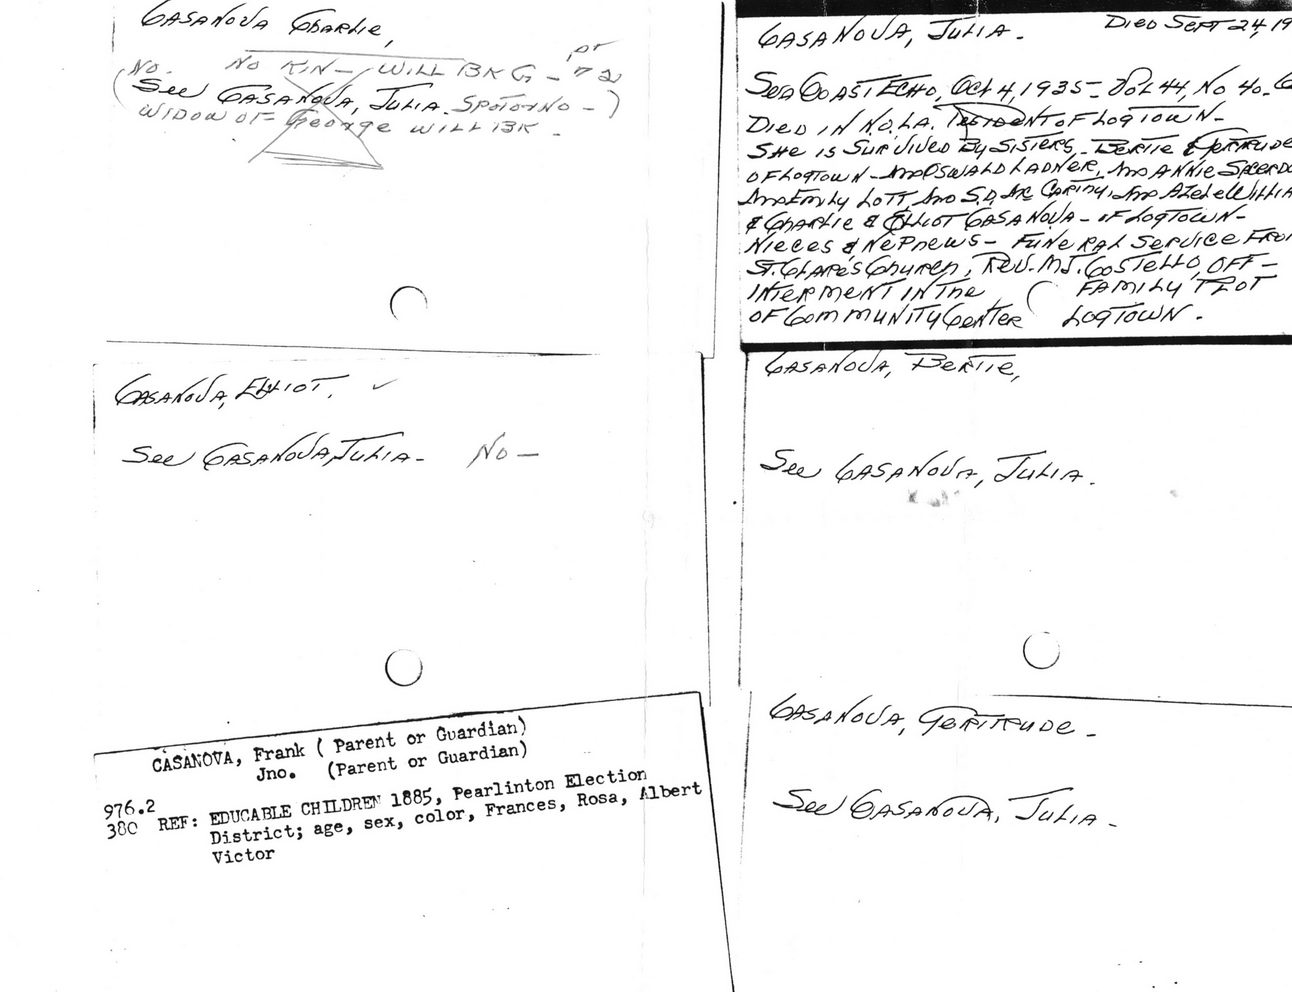 CASANOVA Charlie,
NO. NO KIN — WILL BK G — pr 72
(See CASANOVA, JULIA. SPOTORNO — )
WIDOW OF George WILL BK.
CASANOVA, JULIA. DIED SEPT 24, 19
SEA COAST ECHO, Oct 4, 1935 — Vol 44, No 40.
DIED IN N.O. LA. RESIDENT OF LOGTOWN —
SHE IS SURVIVED BY SISTERS — BERTIE & GERTRUDE
OF LOGTOWN — Mrs OSWALD LADNER, Mrs ANNIE
Mrs Emily LOTT, Mrs S.D. Mc CARTHY, Mrs AZELE WILLIA
& CHARLIE & ELLIOT CASANOVA — OF LOGTOWN —
NIECES & NEPHEWS — FUNERAL SERVICE FRO
ST. CLARE'S CHURCH, REV. M.J. COSTELLO, OFF —
INTERMENT IN THE FAMILY PLOT
OF COMMUNITY CENTER LOGTOWN.
CASANOVA, ELLIOT. ✓
See CASANOVA, JULIA — NO —
CASANOVA, BERTIE,
See CASANOVA, JULIA.
CASANOVA, Frank ( Parent or Guardian)
Jno. (Parent or Guardian)
976.2
380 REF: EDUCABLE CHILDREN 1885, Pearlinton Election
District; age, sex, color, Frances, Rosa, Albert
Victor
CASANOVA, GERTRUDE —
See CASANOVA, JULIA —